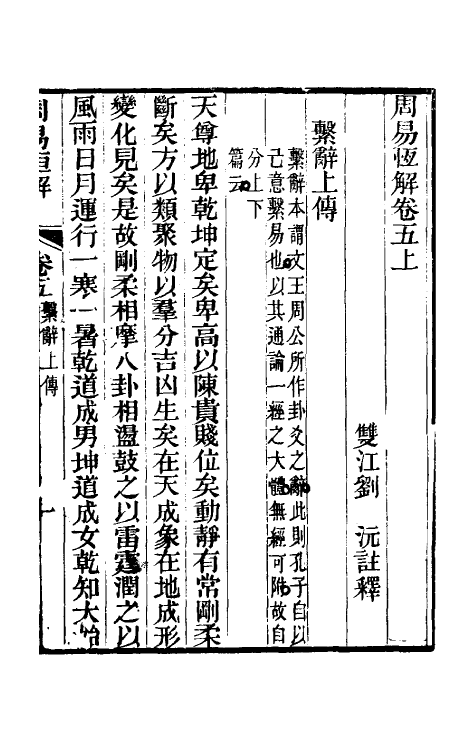 周易恆解卷五上
雙江劉　沅註釋
繫辭上傳
繫辭本謂文王周公所作卦爻之辭此則孔子自以
己意繫易也以其通論一經之大體無經可附故自
分上下
篇云
天尊地卑乾坤定矣卑高以陳貴賤位矣動靜有常剛柔
斷矣方以類聚物以羣分吉凶生矣在天成象在地成形
變化見矣是故剛柔相摩八卦相盪鼓之以雷霆潤之以
風雨日月運行一寒一暑乾道成男坤道成女乾知大始
周易恆解　卷五繫辭上傳